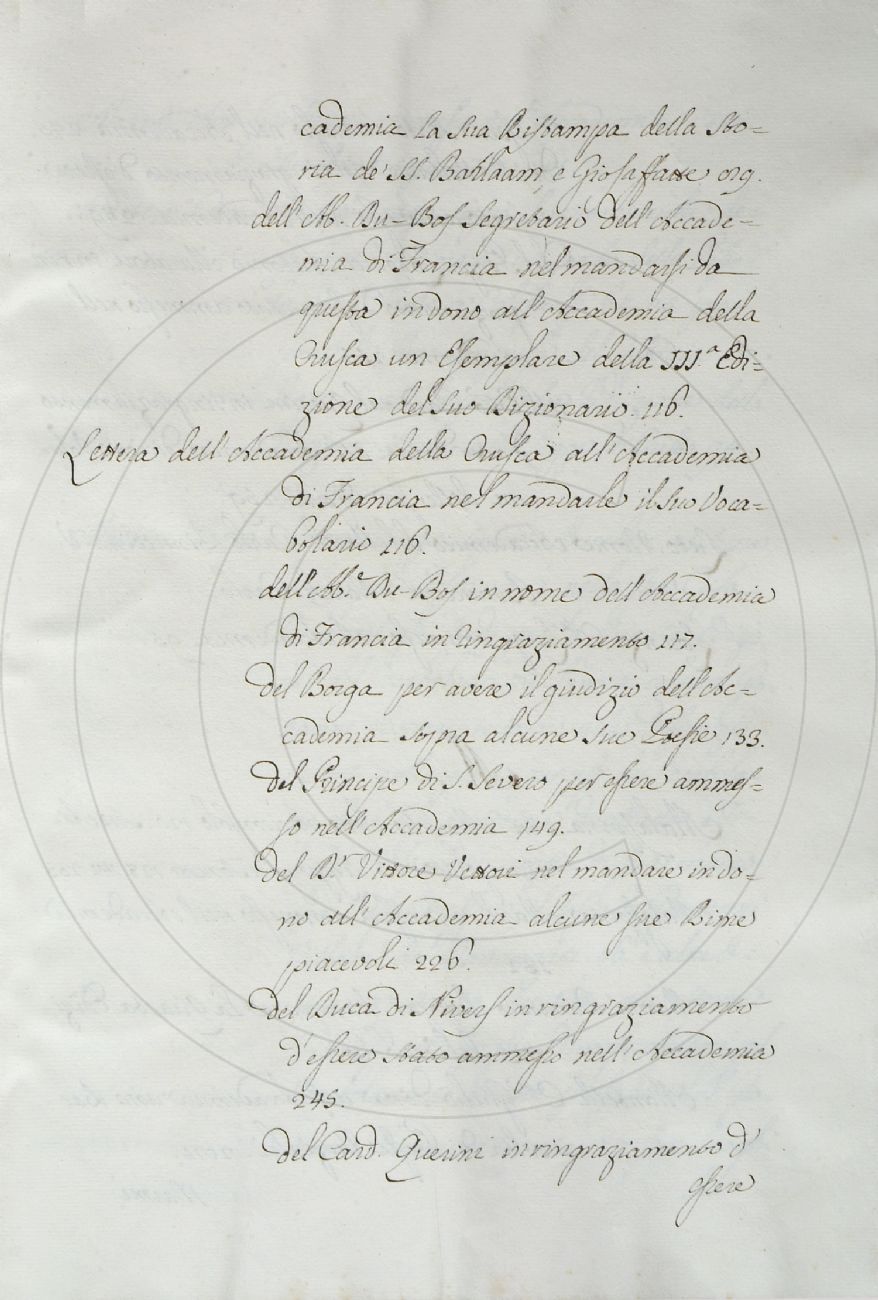 cademia la sua Ristampa della Sto-
ria de' SS. Barlaam, e Giosaffatte 019.
dell'Ab. Du-Bos Segretario dell'Accade-
mia di Francia nel mandarsi da
questa in dono all'Accademia della
Crusca un Esemplare della III.ª Edi-
zione del suo Dizionario. 116.
Lettera dell'Accademia della Crusca all'Accademia
di Francia nel mandarle il suo Voca-
bolario 116.
dell'Ab.e Du-Bos in nome dell'Accademia
di Francia in ringraziamento 117.
del Borga per avere il giudizio dell'Ac-
cademia sopra alcune sue Poesie 133.
del Principe di S. Severo per essere ammes-
so nell'Accademia 149.
del D.r Vittore Vettori nel mandare in do-
no all'Accademia alcune sue Rime
piacevoli 226.
del Duca di Nivers in ringraziamento
d'essere stato ammesso nell'Accademia
245.
del Card. Querini in ringraziamento d'
essere